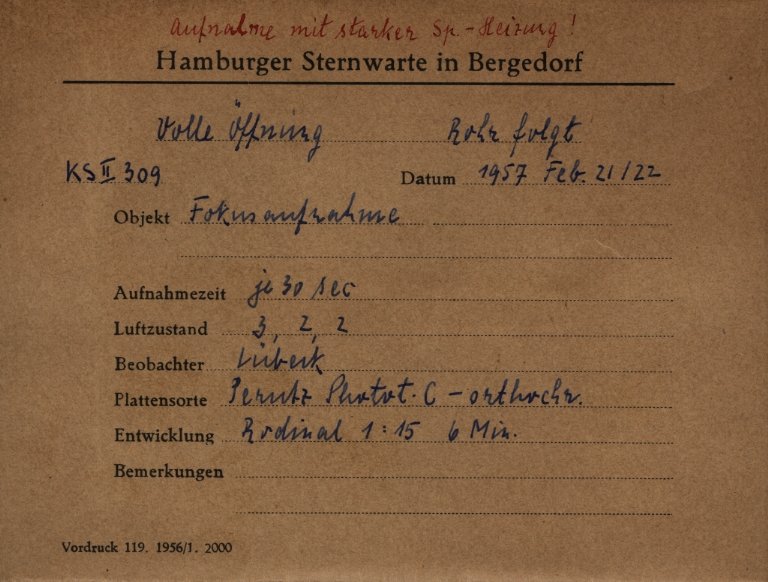 Aufnahme mit starker Sp.-Heizung!
Hamburger Sternwarte in Bergedorf
Volle Öffnung Rohr folgt
KS II 309 Datum 1957 Feb. 21/22
Objekt Fokusaufnahme
Aufnahmezeit je 30 sec
Luftzustand 3, 2, 2
Beobachter Lübeck
Plattensorte Perutz Photot.C - orthochr.
Entwicklung Rodinal 1:15 6 Min.
Bemerkungen
Vordruck 119. 1956/1. 2000